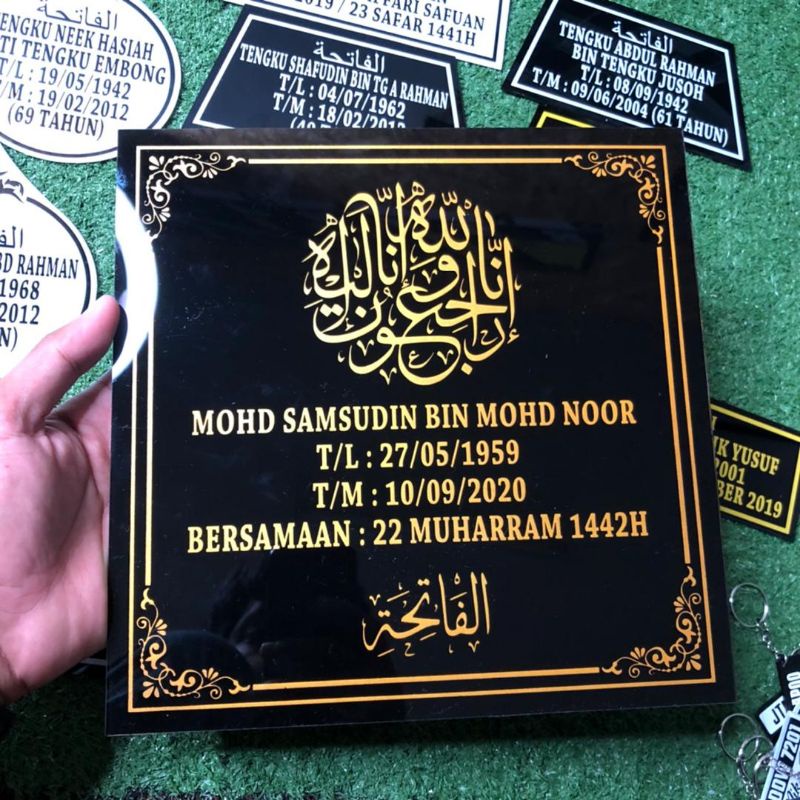 TENGKU NEEK HASIAH
TI TENGKU EMBONG
T/L : 19/05/1942
/M : 19/02/2012
(69 TAHUN)
FARI SAFUAN
2019 / 23 SAFAR 1441H
الفاتحة
TENGKU SHAFUDIN BIN TG A RAHMAN
T/L : 04/07/1962
T/M : 18/02/2012
الفاتحة
TENGKU ABDUL RAHMAN
BIN TENGKU JUSOH
T/L : 08/09/1942
T/M : 09/06/2004 (61 TAHUN)
BD RAHMAN
1968
2012
N)
إِنَّا لِلَّهِ وَإِنَّا إِلَيْهِ رَاجِعُونَ
MOHD SAMSUDIN BIN MOHD NOOR
T/L : 27/05/1959
T/M : 10/09/2020
BERSAMAAN : 22 MUHARRAM 1442H
الْفَاتِحَة
IK YUSUF
2001
BER 2019
JT
7201